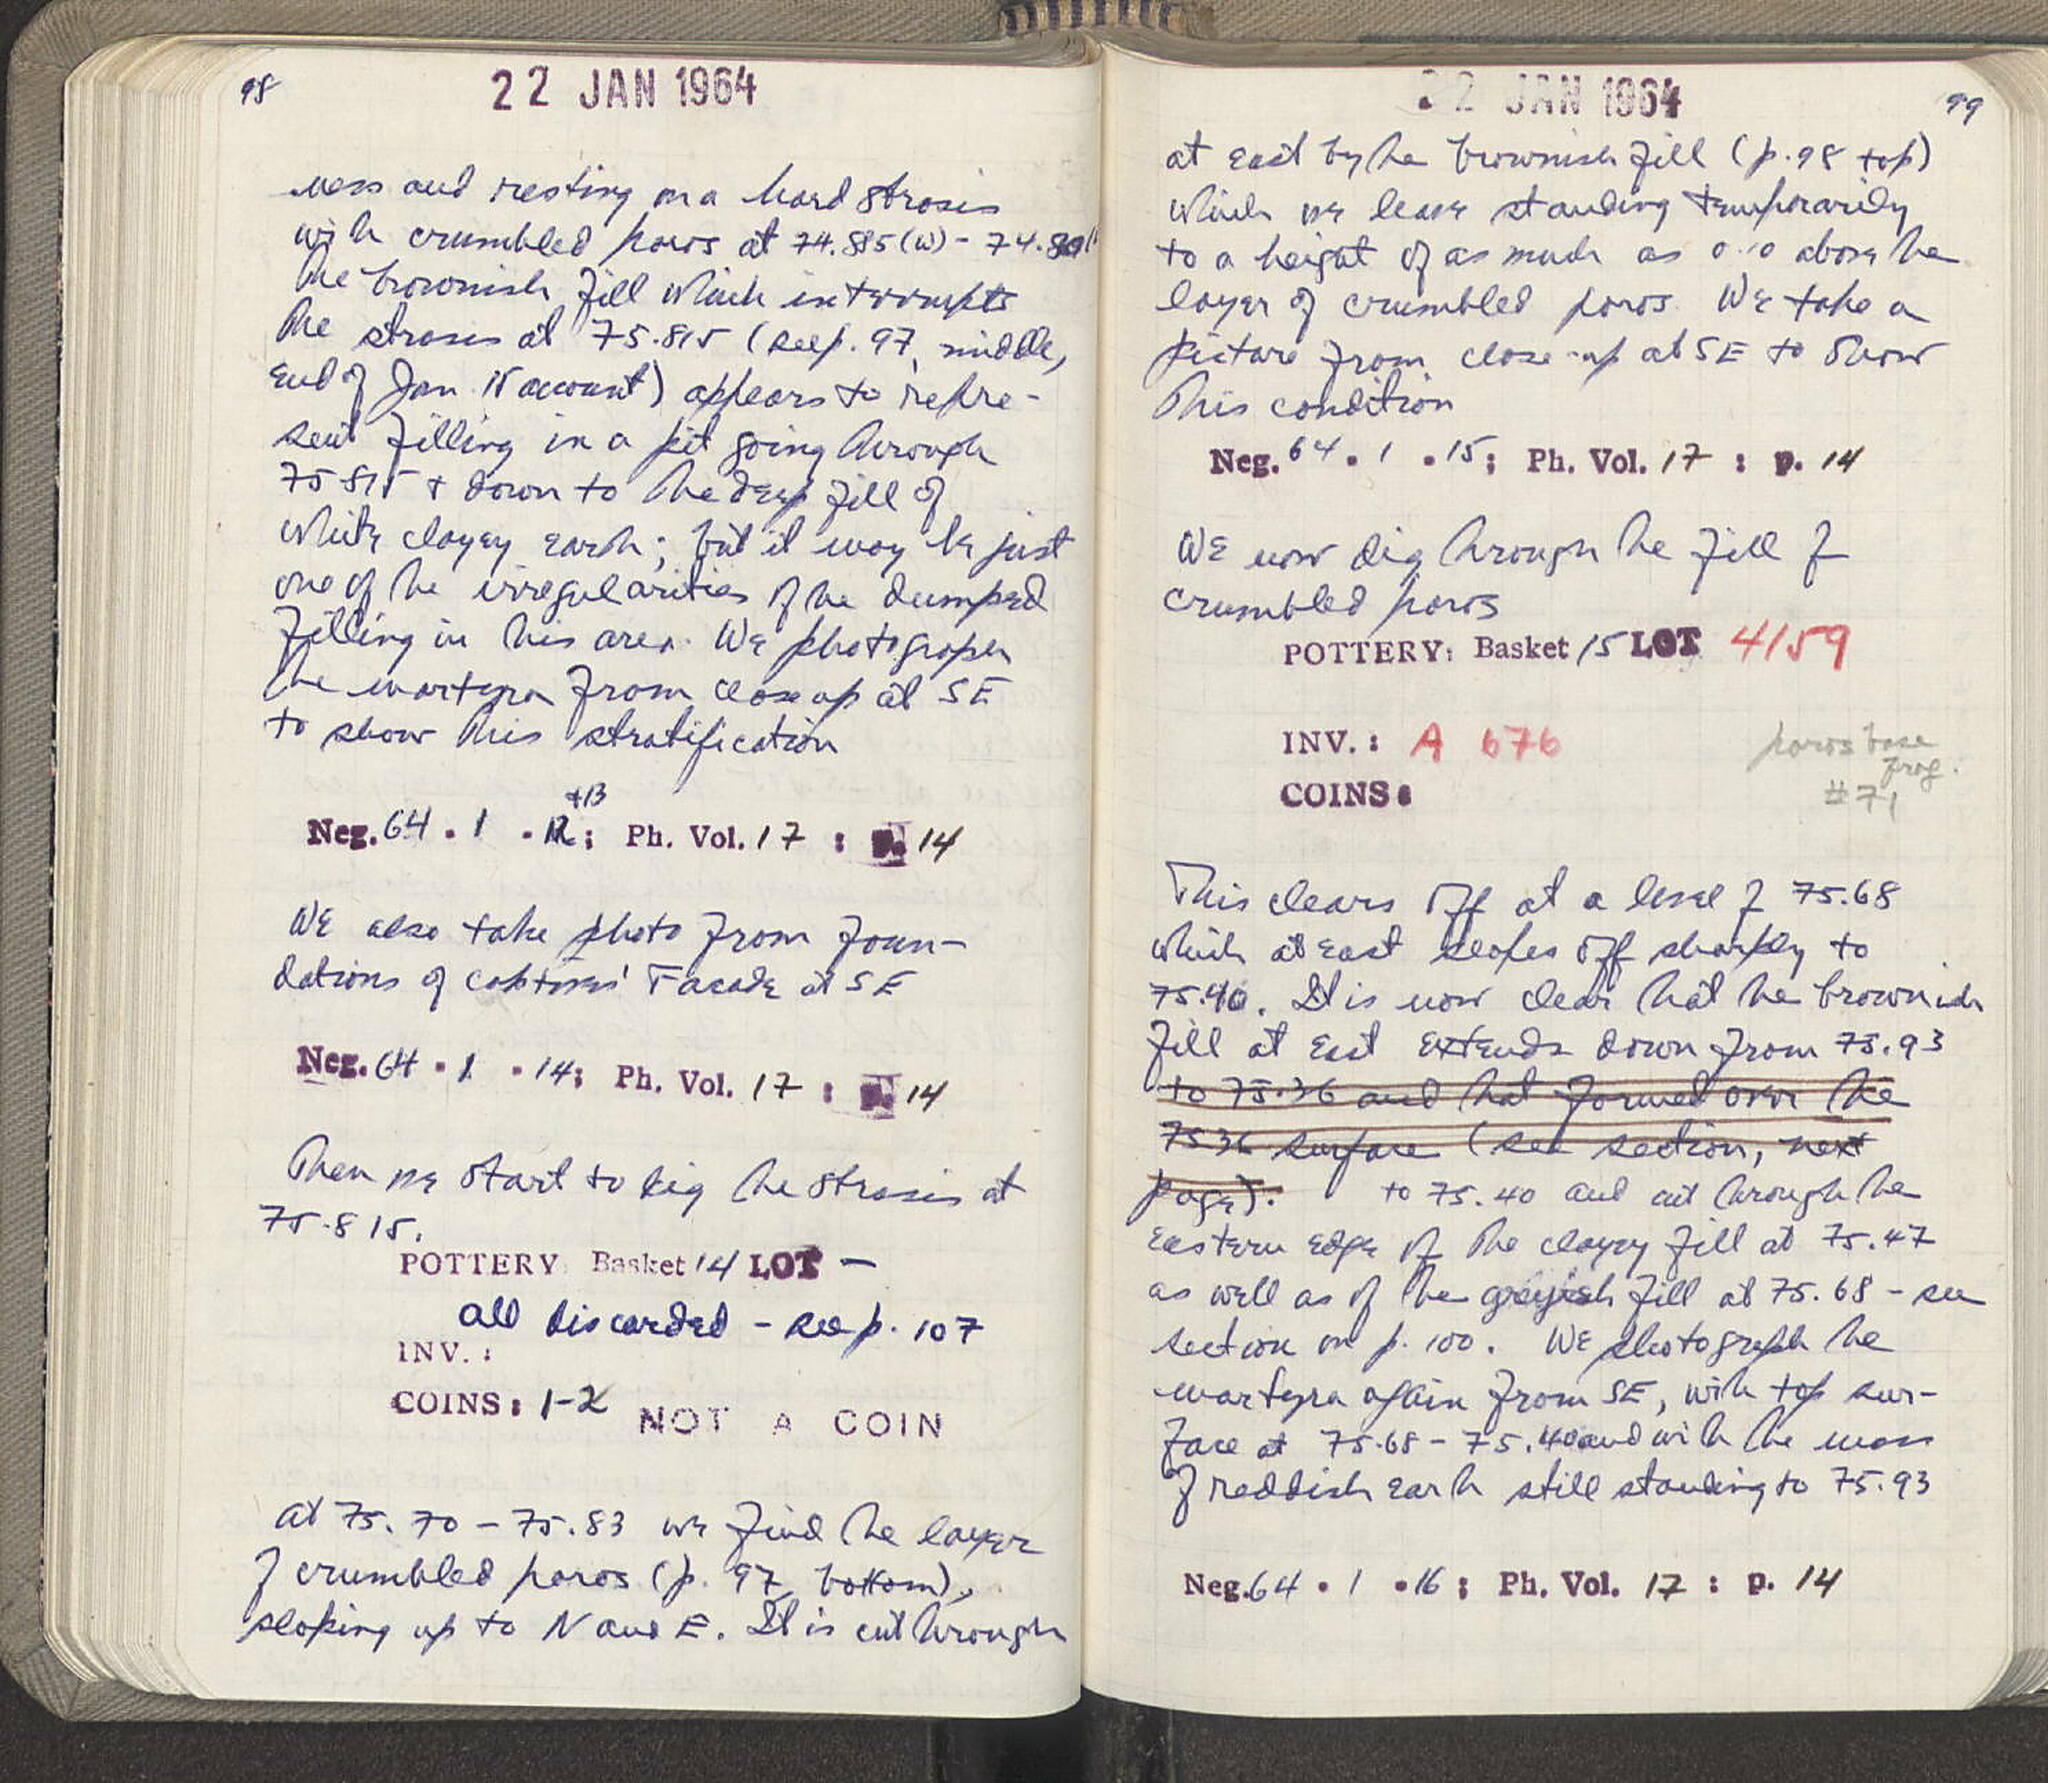 98
22 JAN 1964
ness and resting on a hard strosis
with crumbled poros at 74.885(W) -
The brownish fill which interrupts
the strosis at 75.815 (see p. 97, middle,
end of Jan. 15 account) appears to repre-
sent filling in a pit going through
75.815 + down to the deep fill of
white clayey earth; but it may be just
one of the irregularities of the dumped
filling in this area. We photograph
the martyra from close up at SE
to show this stratification
+13
Neg. 64 . 1 . 12; Ph. Vol. 17 : p. 14
We also take photo from foun-
dations of Captives' Facade at SE
Neg. 64 . 1 . 14; Ph. Vol. 17 : p. 14
Then we start to dig the strosis at
75.815.
POTTERY: Basket 14 LOT —
all discarded - see p. 107
INV. :
COINS: 1-2 NOT A COIN
at 75.70 - 75.83 we find the layer
of crumbled poros (p. 97, bottom),
sloping up to N and E. It is cut through
22 JAN 1964
99
at east by the brownish fill (p. 98 top)
which we leave standing temporarily
to a height of as much as 0.10 above the
layer of crumbled poros. We take a
picture from close-up at SE to show
this condition
Neg. 64 . 1 . 15; Ph. Vol. 17 : p. 14
We now dig through the fill of
crumbled poros
POTTERY: Basket 15 LOT 4159
INV. : A 676
poros base
frag.
#71
COINS:
This clears off at a level of 75.68
which at east slopes off sharply to
75.40. It is now clear that the brownish
fill at east extends down from 75.93
to 75.36 and that formed over the
75.36 surface (see section, next
page). to 75.40 and cut through the
eastern edge of the clayey fill at 75.47
as well as of the greyish fill at 75.68 - see
section on p. 100. We photograph the
martyra again from SE, with top sur-
face at 75.68 - 75.40 and with the mass
of reddish earth still standing to 75.93
Neg. 64 . 1 . 16; Ph. Vol. 17 : p. 14